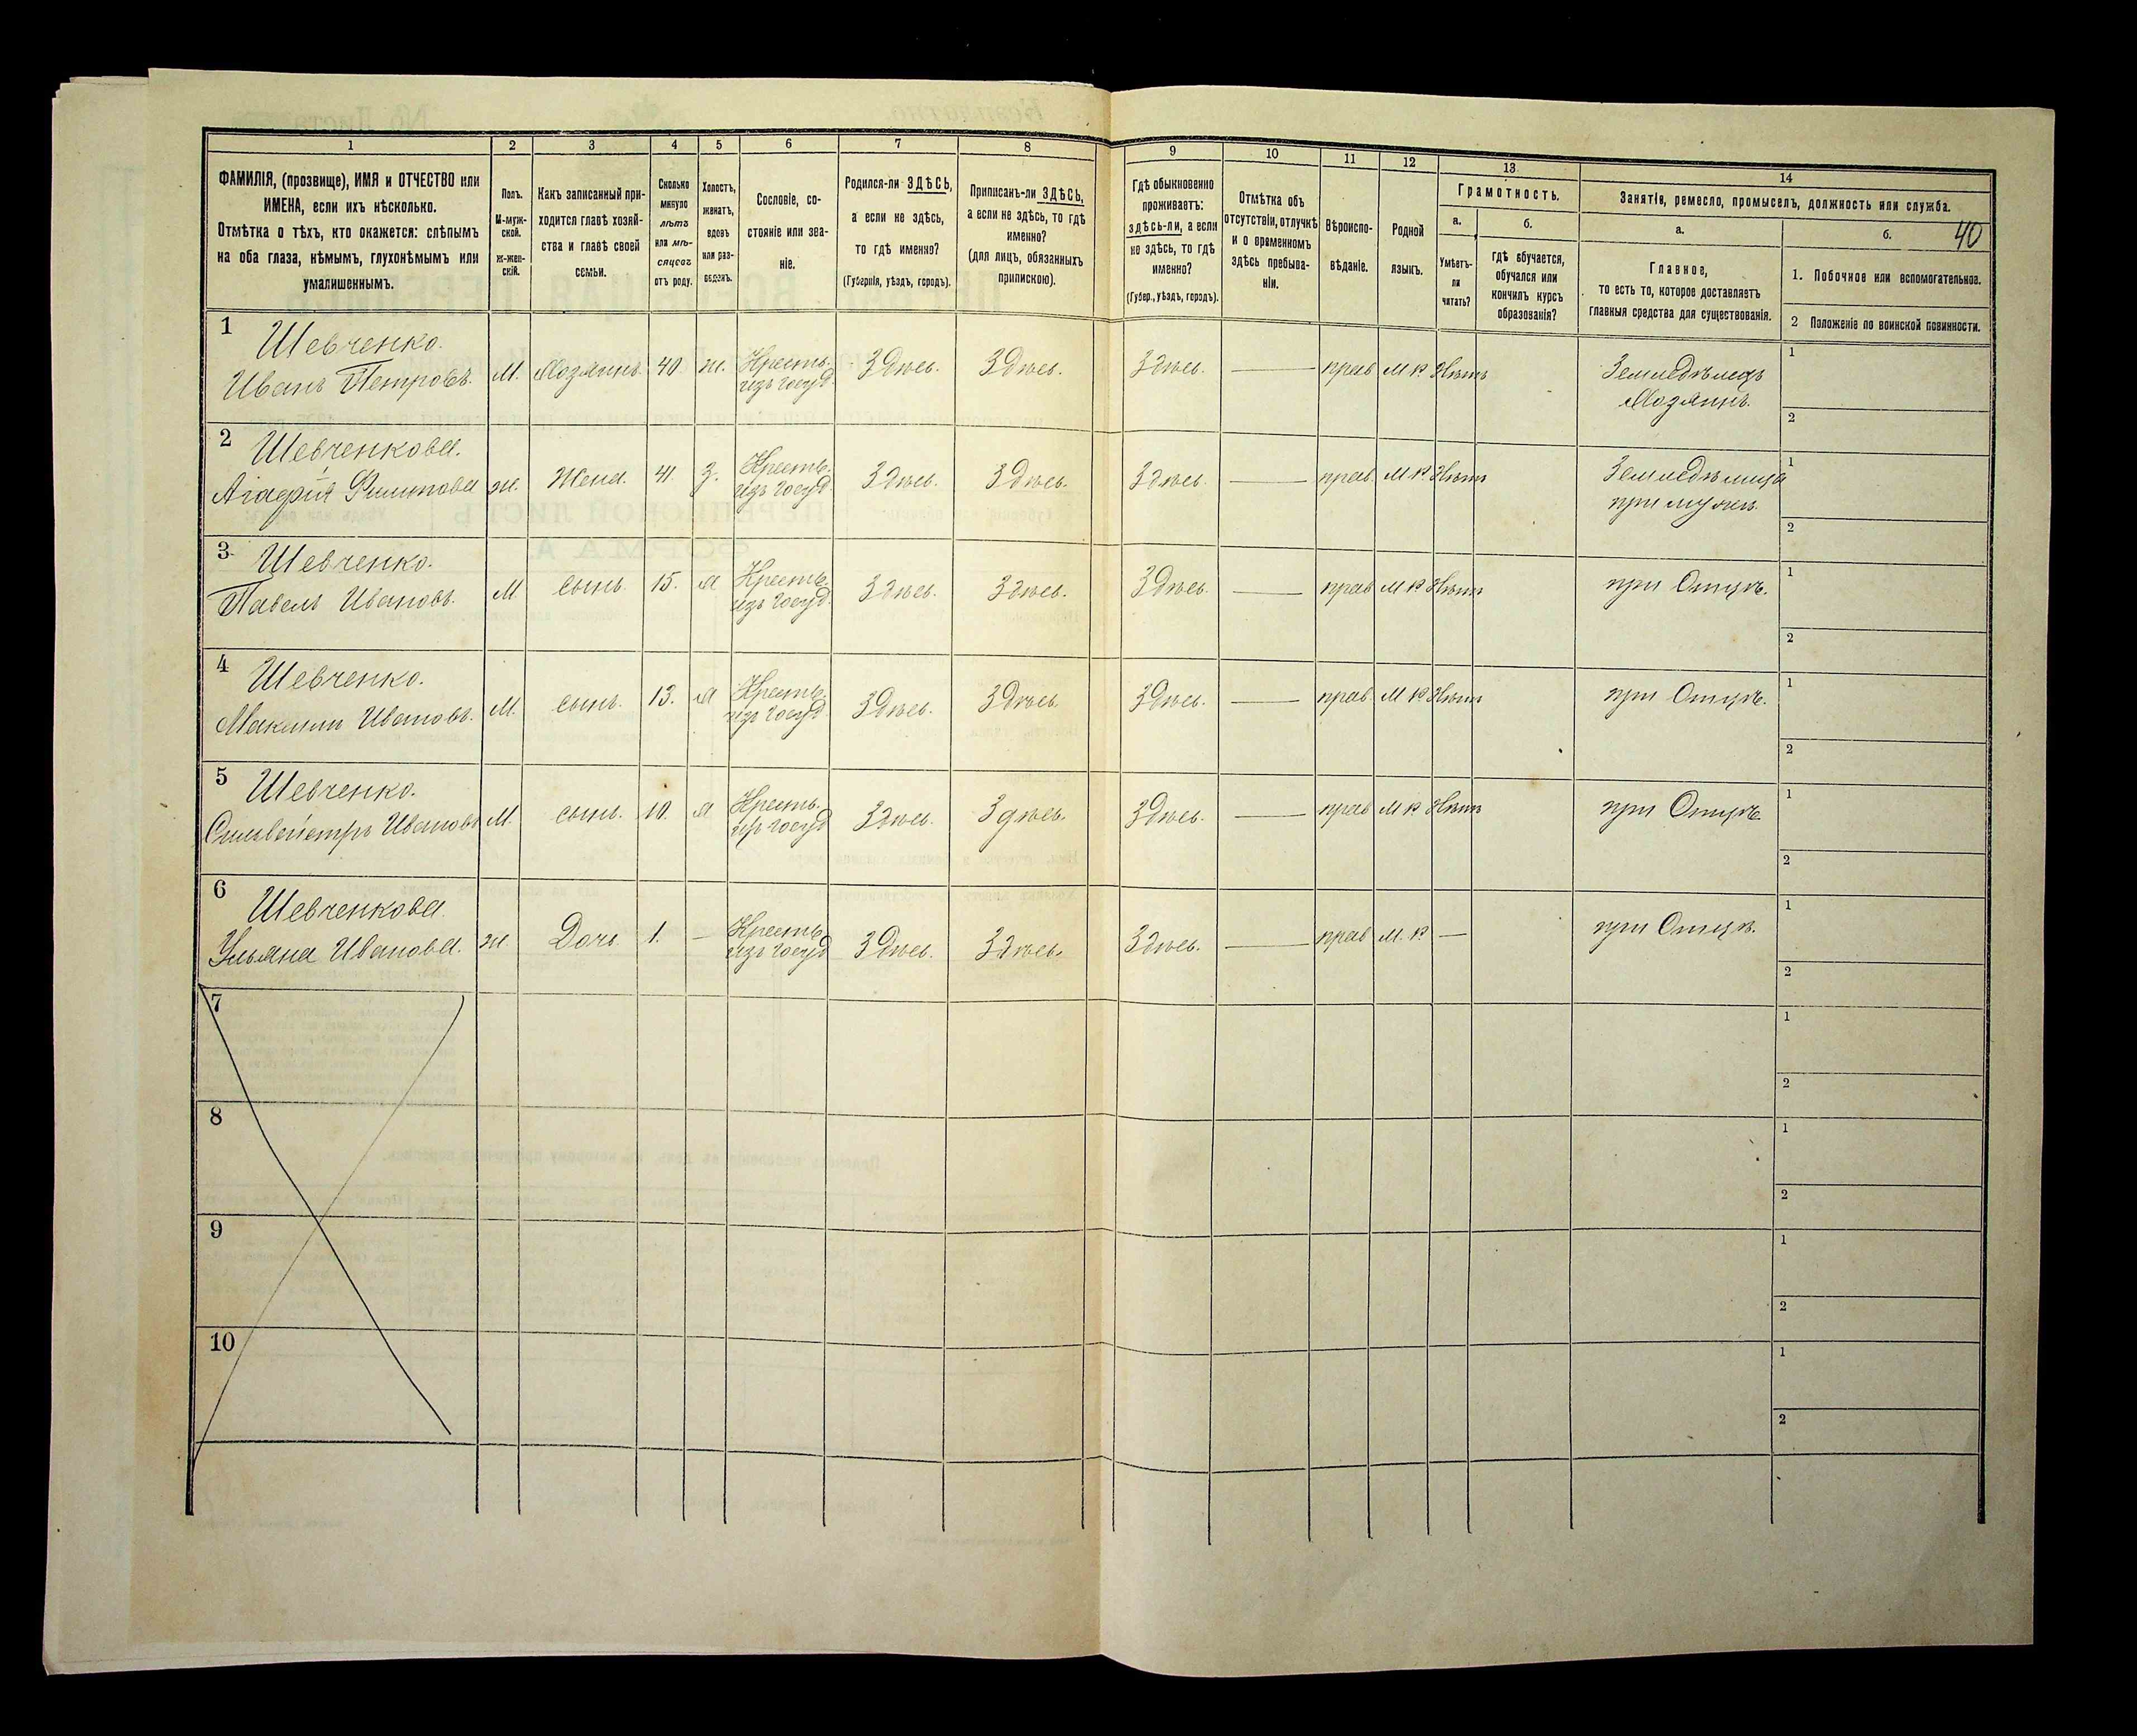 40
1 2 3 4 5 6 7 8 9 10 11 12 13 14
ФАМИЛІЯ, (прозвище), ИМЯ и ОТЧЕСТВО или
ИМЕНА, если ихъ нѣсколько.
Отмѣтка о тѣхъ, кто окажется: слѣпымъ
на оба глаза, нѣмымъ, глухонѣмымъ или
умалишеннымъ.
Полъ.
М-муж-
ской.
ж-жен-
скій.
Какъ записанный при-
ходится главѣ хозяй-
ства и главѣ своей
семьи.
Сколько
минуло
лѣтъ
или мѣ-
сяцевъ
отъ роду.
Холостъ,
женатъ,
вдовъ
или раз-
веденъ.
Сословіе, со-
стояніе или зва-
ніе.
Родился-ли ЗДѢСЬ,
а если не здѣсь,
то гдѣ именно?
(Губернія, уѣздъ, городъ).
Приписанъ-ли ЗДѢСЬ,
а если не здѣсь, то гдѣ
именно?
(для лицъ, обязанныхъ
припискою).
Гдѣ обыкновенно
проживаетъ:
здѣсь-ли, а если
не здѣсь, то гдѣ
именно?
(Губер., уѣздъ, городъ).
Отмѣтка объ
отсутствіи, отлучкѣ
и о временномъ
здѣсь пребыва-
ніи.
Вѣроиспо-
вѣданіе.
Родной
языкъ.
Грамотность.
а.
Умѣетъ-
ли
читать?
б.
гдѣ обучается,
обучался или
кончилъ курсъ
образованія?
Занятіе, ремесло, промыселъ, должность или служба.
а.
Главное,
то есть то, которое доставляетъ
главныя средства для существованія.
б.
1. Побочное или вспомогательное.
2 Положеніе по воинской повинности.
1 Шевченко. 1
Иванъ Петровъ. М. Хозяинъ 40 ж. Кресть. Здѣсь. Здѣсь. Здѣсь. прав М р Нѣтъ Земледѣлецъ
изъ госуд. Хозяинъ. 2
2 Шевченкова. 1
Агафія Филипова ж. Жена. 41. З. Кресть. Здѣсь. Здѣсь. Здѣсь. прав. М. р. Нѣтъ Земледѣлица
изъ госуд. при мужѣ. 2
3 Шевченко. 1
Павелъ Ивановъ. М сынъ. 15. Х Кресть. Здѣсь. Здѣсь. Здѣсь. прав М р Нѣтъ при Отцѣ.
изъ госуд. 2
4 Шевченко. 1
Максимъ Ивановъ. М. сынъ. 13. Х Кресть. Здѣсь. Здѣсь. Здѣсь. прав. М р Нѣтъ при Отцѣ.
изъ госуд 2
5 Шевченко. 1
Сильвейстръ Ивановъ М. сынъ. 10. Х Кресть. Здѣсь. Здѣсь. Здѣсь. прав М р. Нѣтъ при Отцѣ
изъ госуд 2
6 Шевченкова 1
Ульяна Иванова. ж. Дочь. 1. Кресть Здѣсь. Здѣсь. Здѣсь. прав М. р. при Отцѣ.
изъ госуд 2
7 1
2
8 1
2
9 1
2
10 1
2